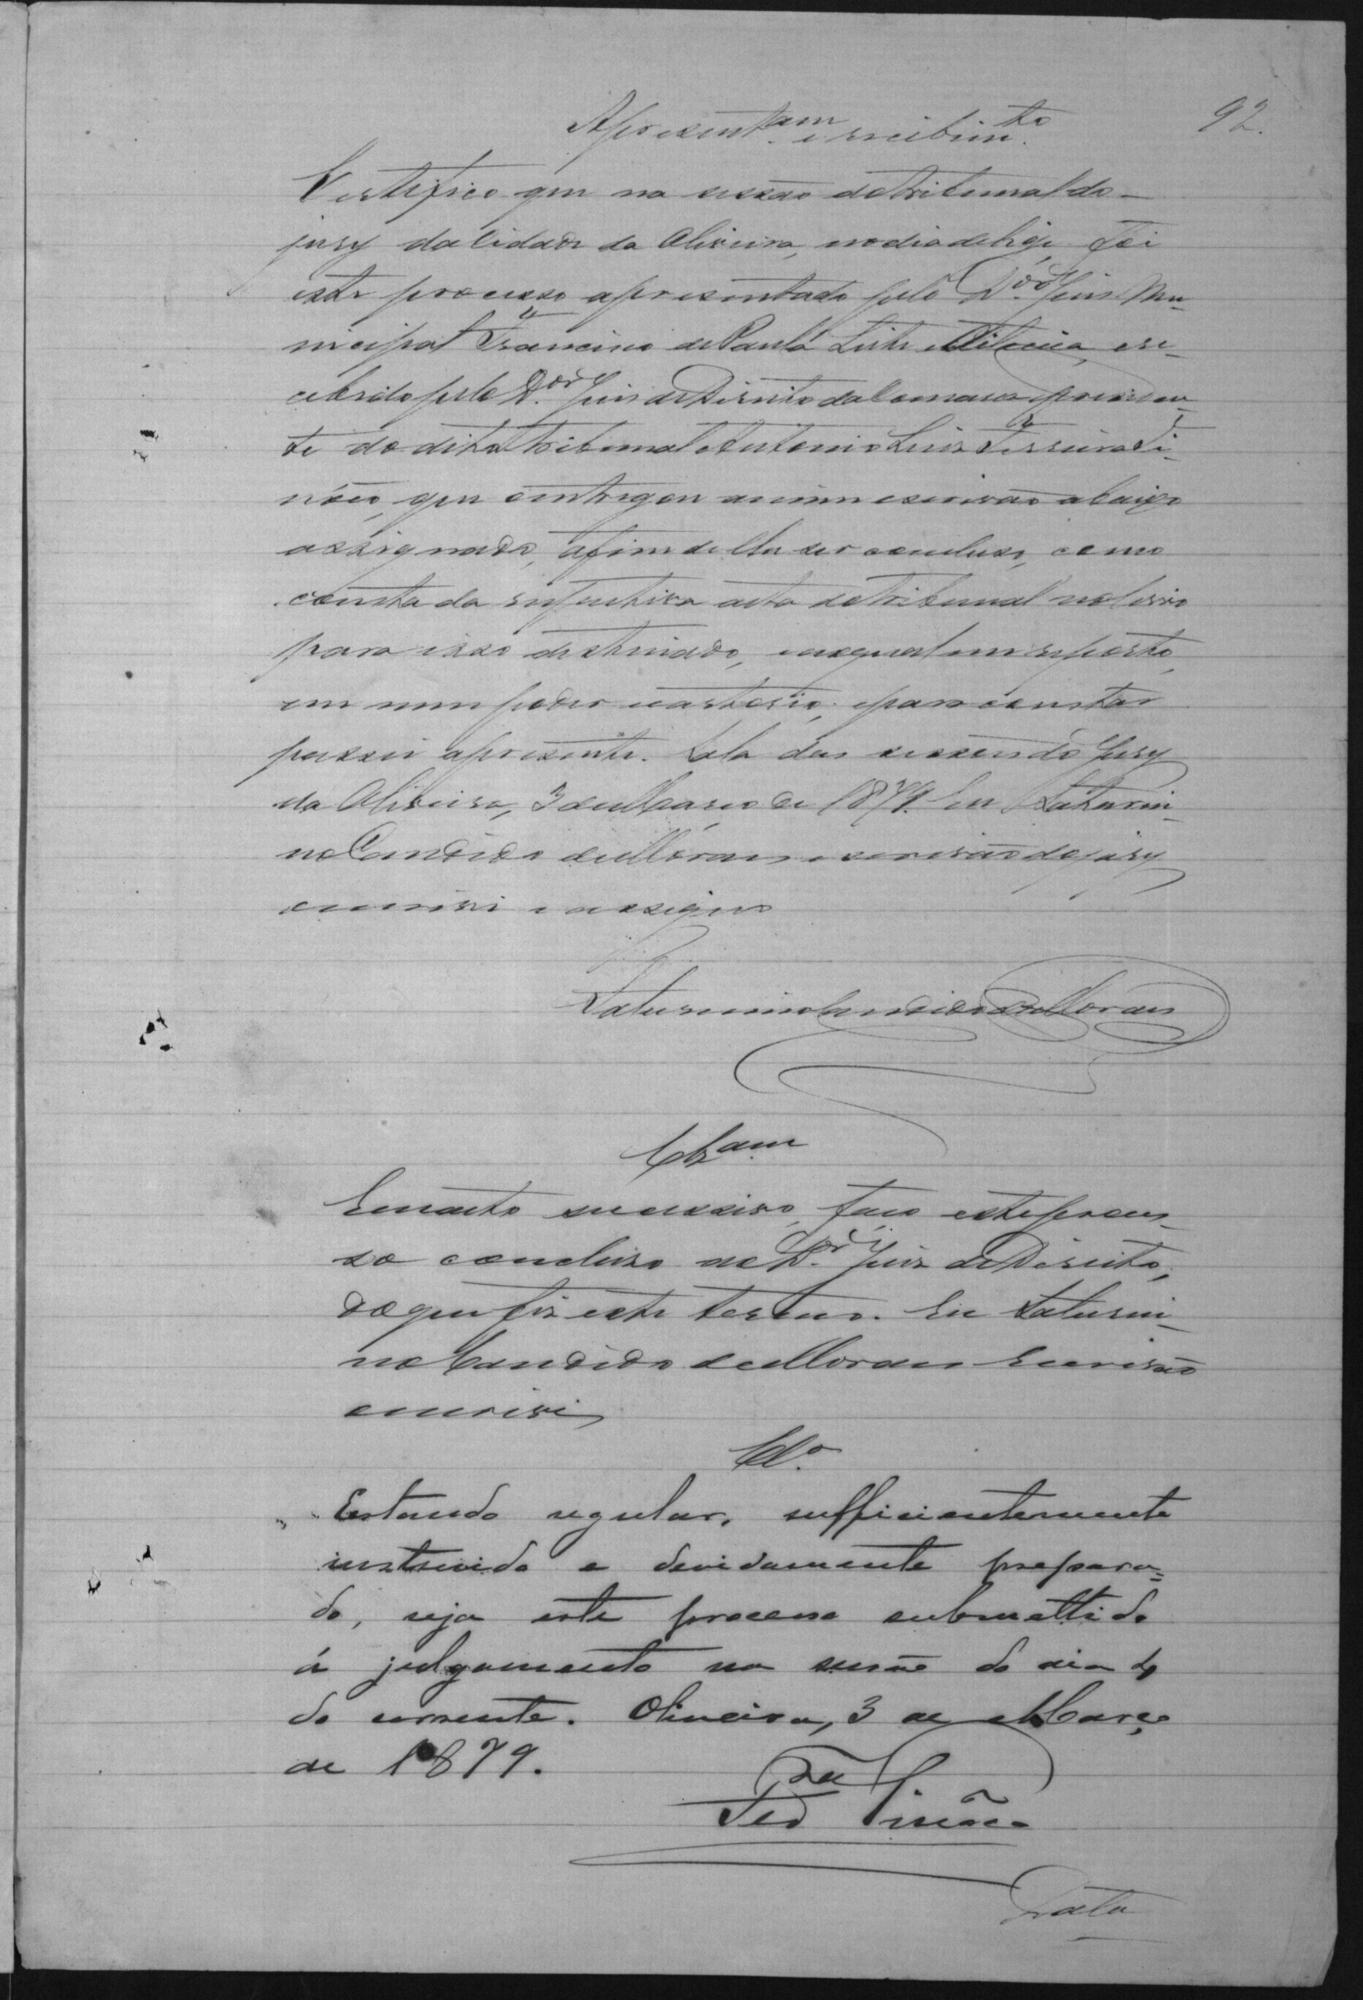 92.
Apresentam. e recebimto.
Certifico que na sessão do tribunal do
jury da cidade da Oliveira, no dia de hoje foi
este processo apresentado pelo Dor. Juiz Mu-
nicipal Francisco de Paula Leite e Oiticica, e re-
cebido pelo Dor. Juiz de Direito da Comarca e presiden-
te do dito tribunal Antonio Luiz Ferreira Ti-
nôco, que entregou a mim escrivão abaixo
assignado, afim de lhe ser concluso, como
consta da respectiva acta do tribunal no livro
para isso destinado, ao qual me reporto,
em meu poder e cartorio; e para constar
passei a presente. Sala das sessões do Jury
da Oliveira, 3 de Março de 1879. Eu Saturni-
no Candido de Moraes escrivão do jury
escrevi e assigno
Saturnino Candido de Moraes
Clzam
Em acto successivo, faço este proces-
so concluso ao Dr. Juiz de Direito,
do que fiz este termo. Eu Saturni-
no Candido de Moraes Escrivão
escrevi
Clo.
Estando regular, sufficientemente
instruido e devidamente prepara-
do, seja este processo submettido
á julgamento na sessão do dia
do corrente. Oliveira, 3 de Março
de 1879.
Ferra Tinôco
Data